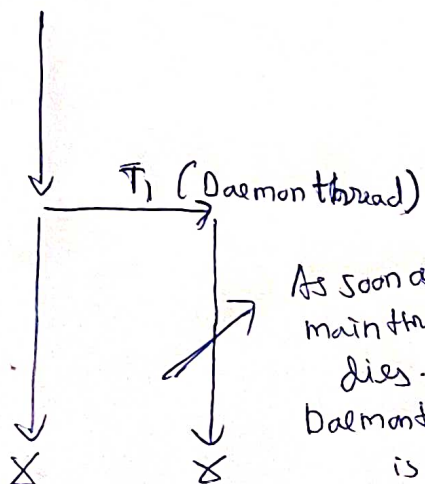 T1 (Daemon thread)
As soon a
main thr
dies.
Daemont
is